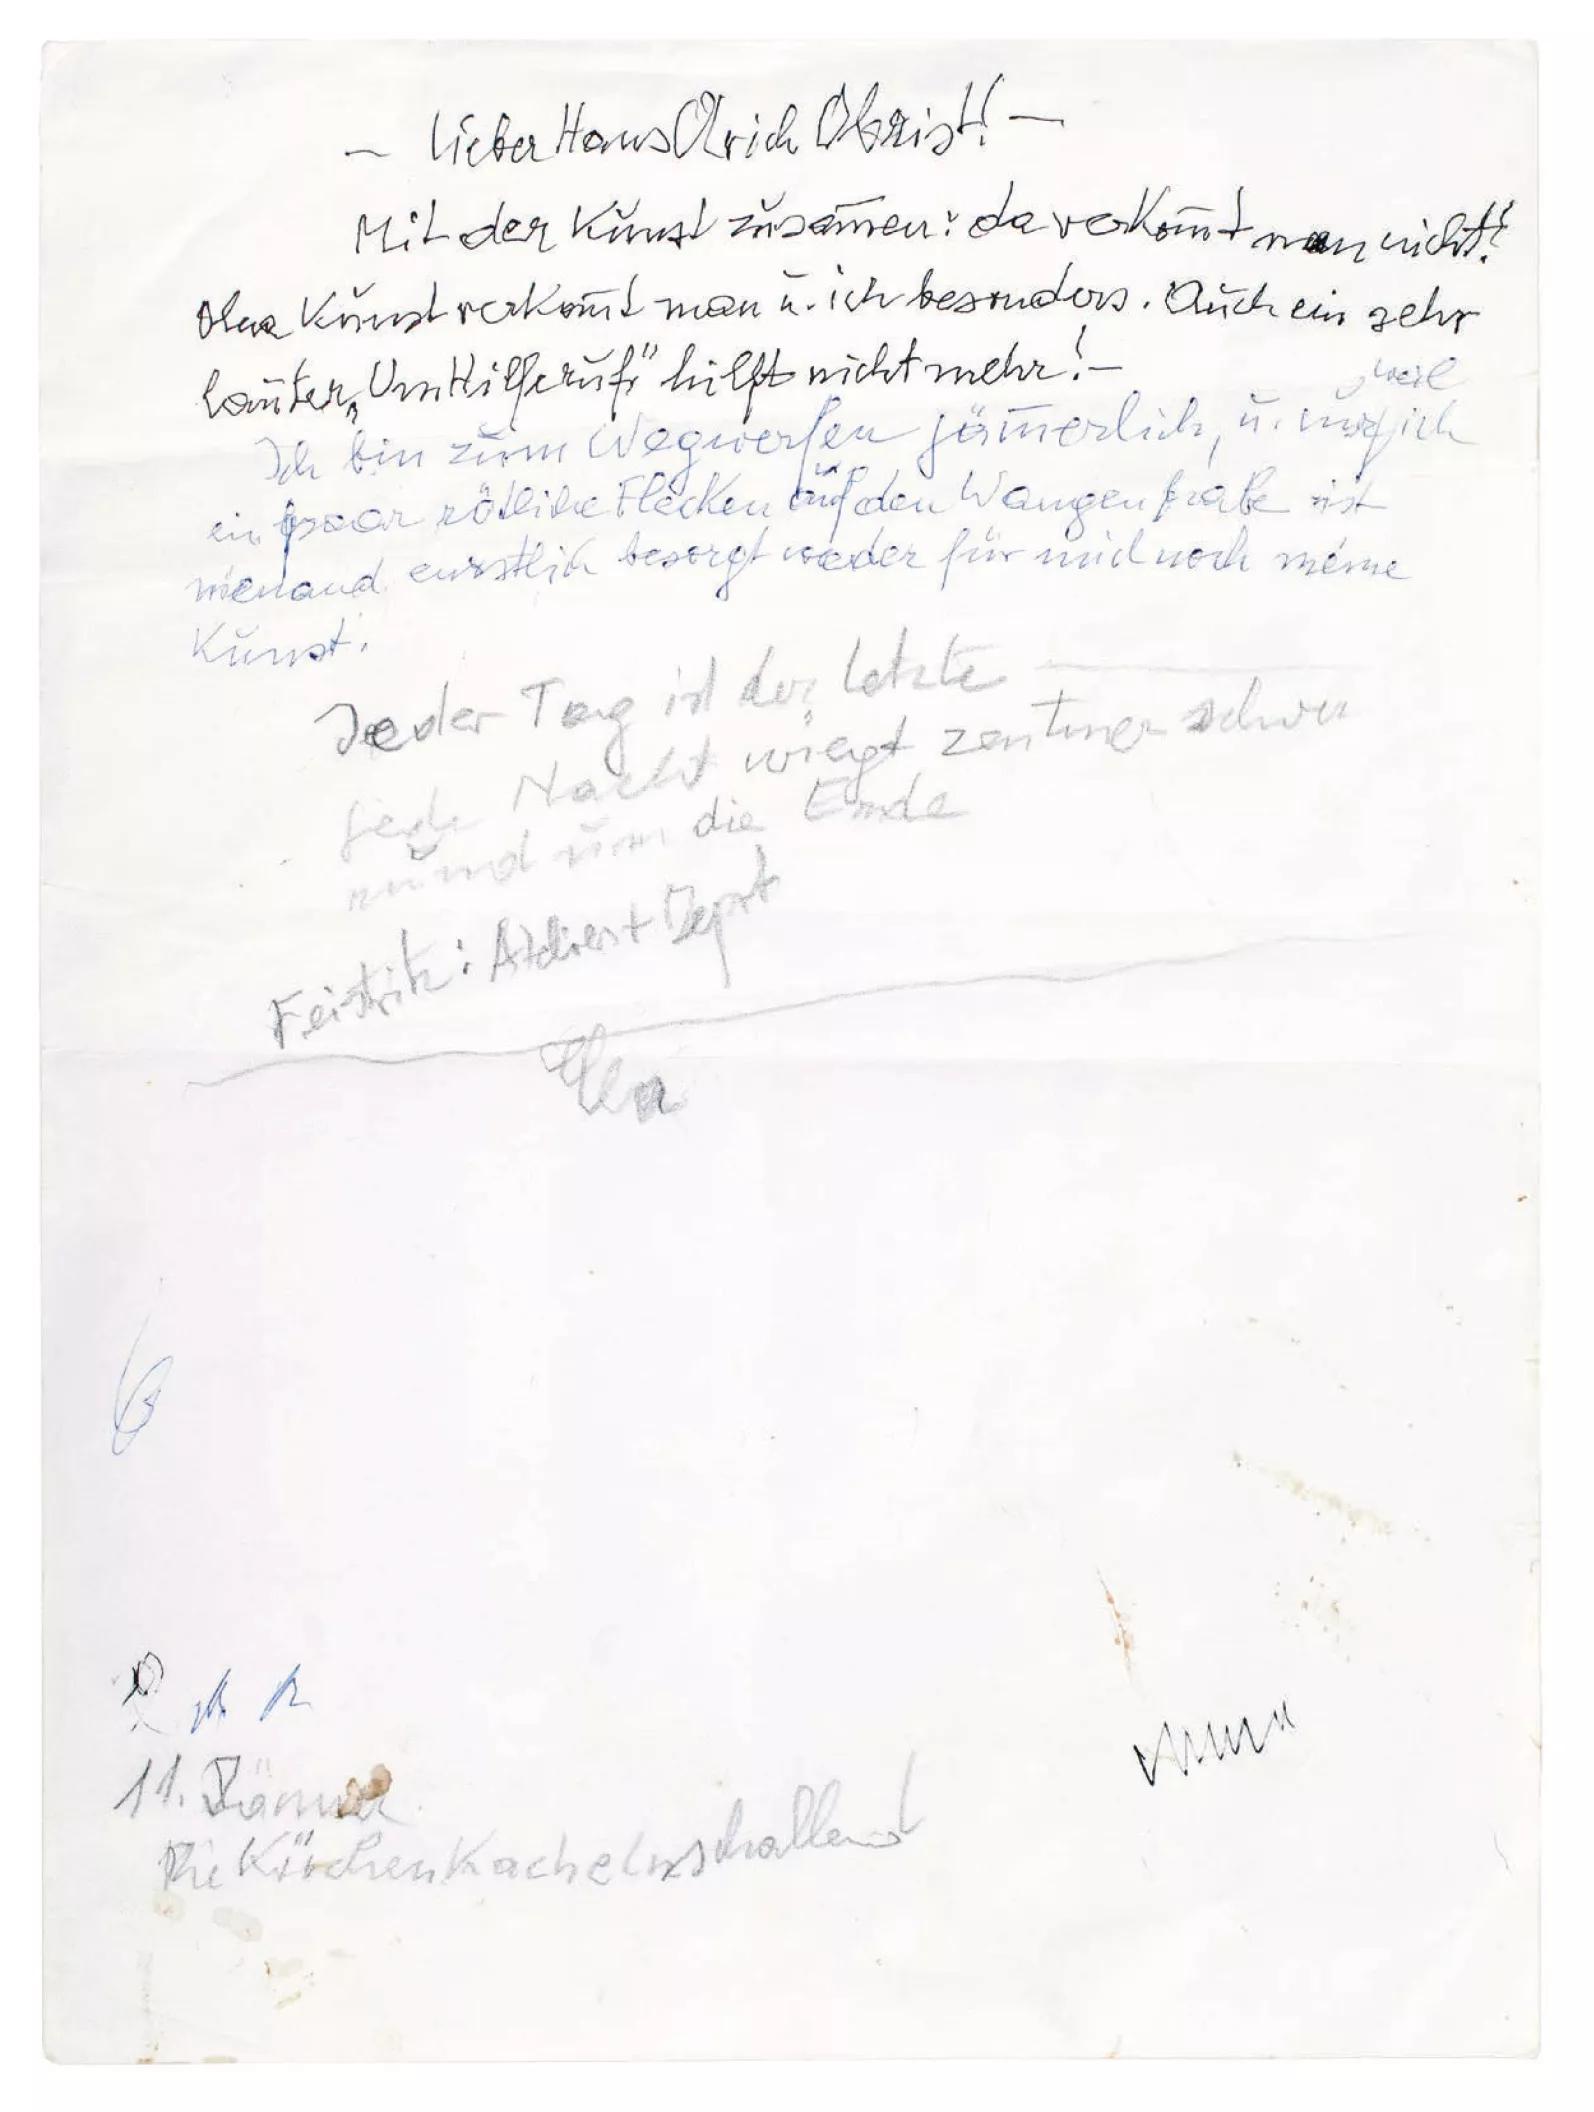 – Lieber Hans Ulrich Obrist! –
Mit der Kunst zusam̅en: da verkom̅t man nicht!
Ohne Kunst verkom̅t man u. ich besonders. Auch ein sehr
lauter „Um Hilferuf“ hilft nicht mehr! –
weil
Ich bin zum Wegwerfen jäm̅erlich, u. nur ich
ein paar rötliche Flecken auf den Wangen habe ist
niemand ernstlich besorgt weder für mich noch meine
Kunst.
Jeder Tag ist der letzte
jede Nacht wiegt zentner schwer
rund um die Ende
Feistritz: Advent Depot
6
11. Jänner
Die Küchen Kacheln schallend